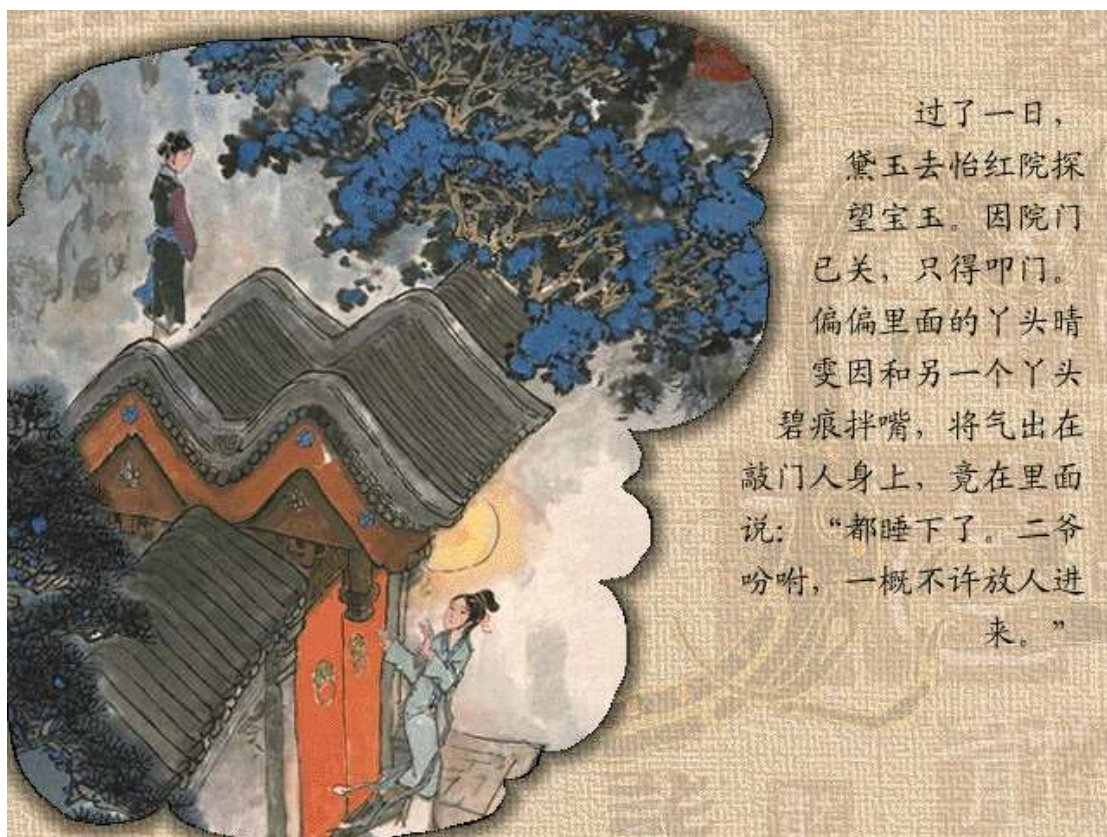 过了一日，
黛玉去怡红院探
望宝玉。因院门
已关，只得叩门。
偏偏里面的丫头晴
雯因和另一个丫头
碧痕拌嘴，将气出在
敲门人身上，竟在里面
说：“都睡下了。二爷
吩咐，一概不许放人进
来。”